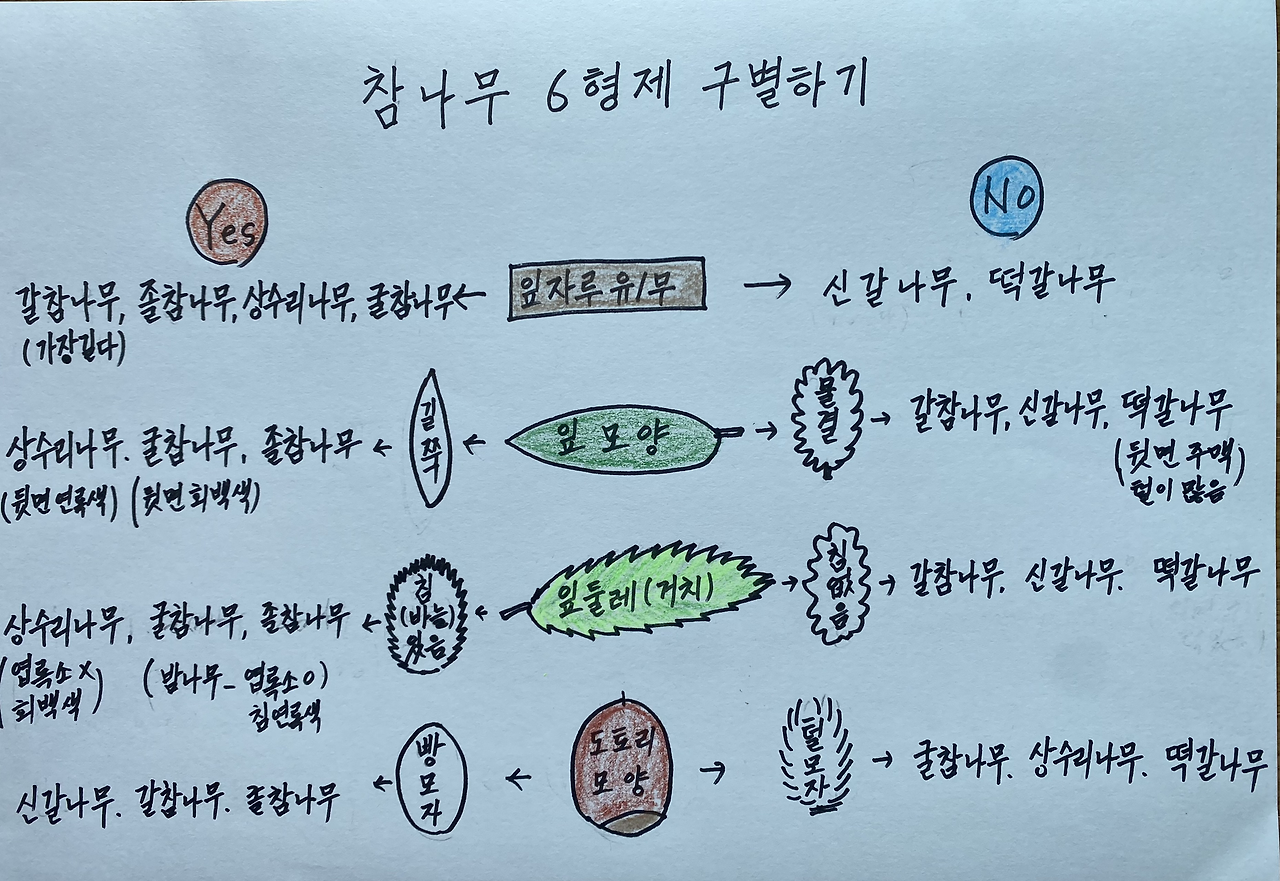 참나무 6형제 구별하기
Yes
No
갈참나무, 졸참나무, 상수리나무, 굴참나무
(가장길다)
잎자루 유/무
신갈나무, 떡갈나무
상수리나무. 굴참나무, 졸참나무
(뒷면 연록색) (뒷면 회백색)
길쭉
잎 모양
물결
갈참나무, 신갈나무, 떡갈나무
(뒷면 주맥)
털이 많음
상수리나무, 굴참나무, 졸참나무
(엽록소 X 회백색)
(밤나무- 엽록소 O)
침연록색
침
(바늘)
있음
잎둘레(거치)
침
없
음
갈참나무. 신갈나무. 떡갈나무
신갈나무. 갈참나무. 졸참나무
빵
모
자
도토리
모양
털
모
자
굴참나무. 상수리나무. 떡갈나무